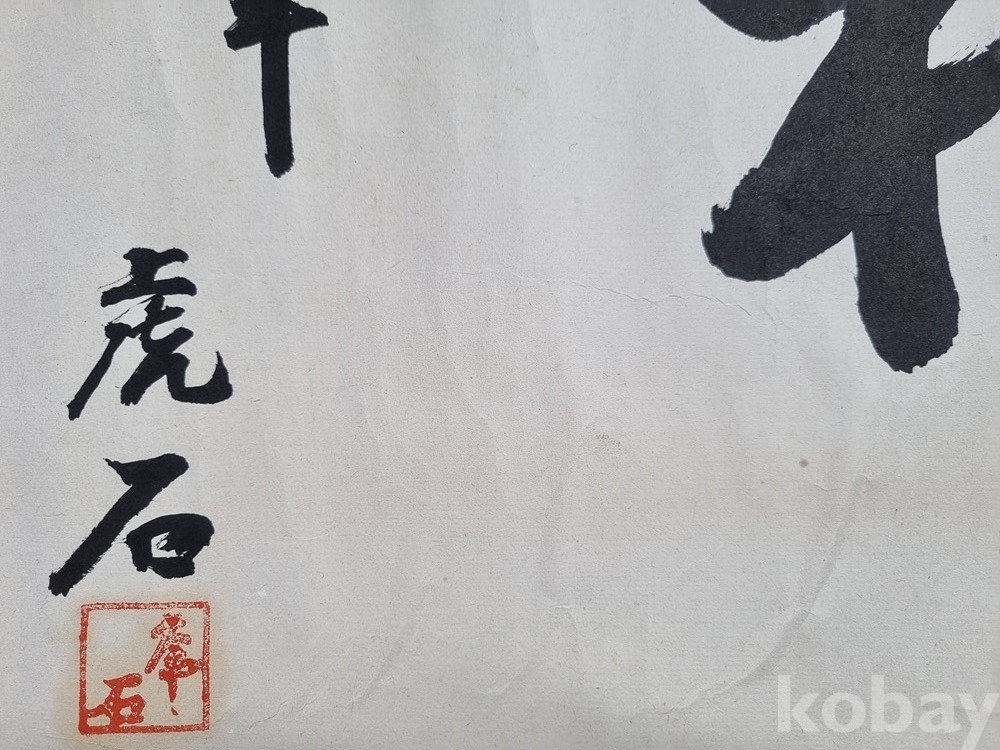 虎石
虎石
kobay